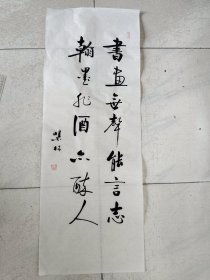 書畫無聲能言志
翰墨非酒亦醉人